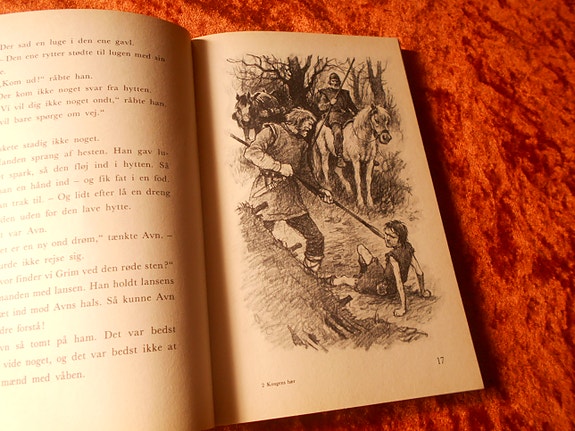 Der sad en luge i den ene gavl.
– Den ene rytter stødte til lugen med sin
„Kom ud!“ råbte han.
Der kom ikke noget svar fra hytten.
Vi vil dig ikke noget ondt,“ råbte han.
vil bare spørge om vej.“
stadig ikke noget.
sprang af hesten. Han gav lu-
spark, så den fløj ind i hytten. Så
han en hånd ind – og fik fat i en fod.
trak til. – Og lidt efter lå en dreng
uden for den lave hytte.
var Avn.
er en ny ond drøm,“ tænkte Avn. –
ikke rejse sig.
finder vi Grim ved den røde sten?“
manden med lansen. Han holdt lansens
ind mod Avns hals. Så kunne Avn
forstå!
så tomt på ham. Det var bedst
vide noget, og det var bedst ikke at
mænd med våben.
17
2 Kongens hær